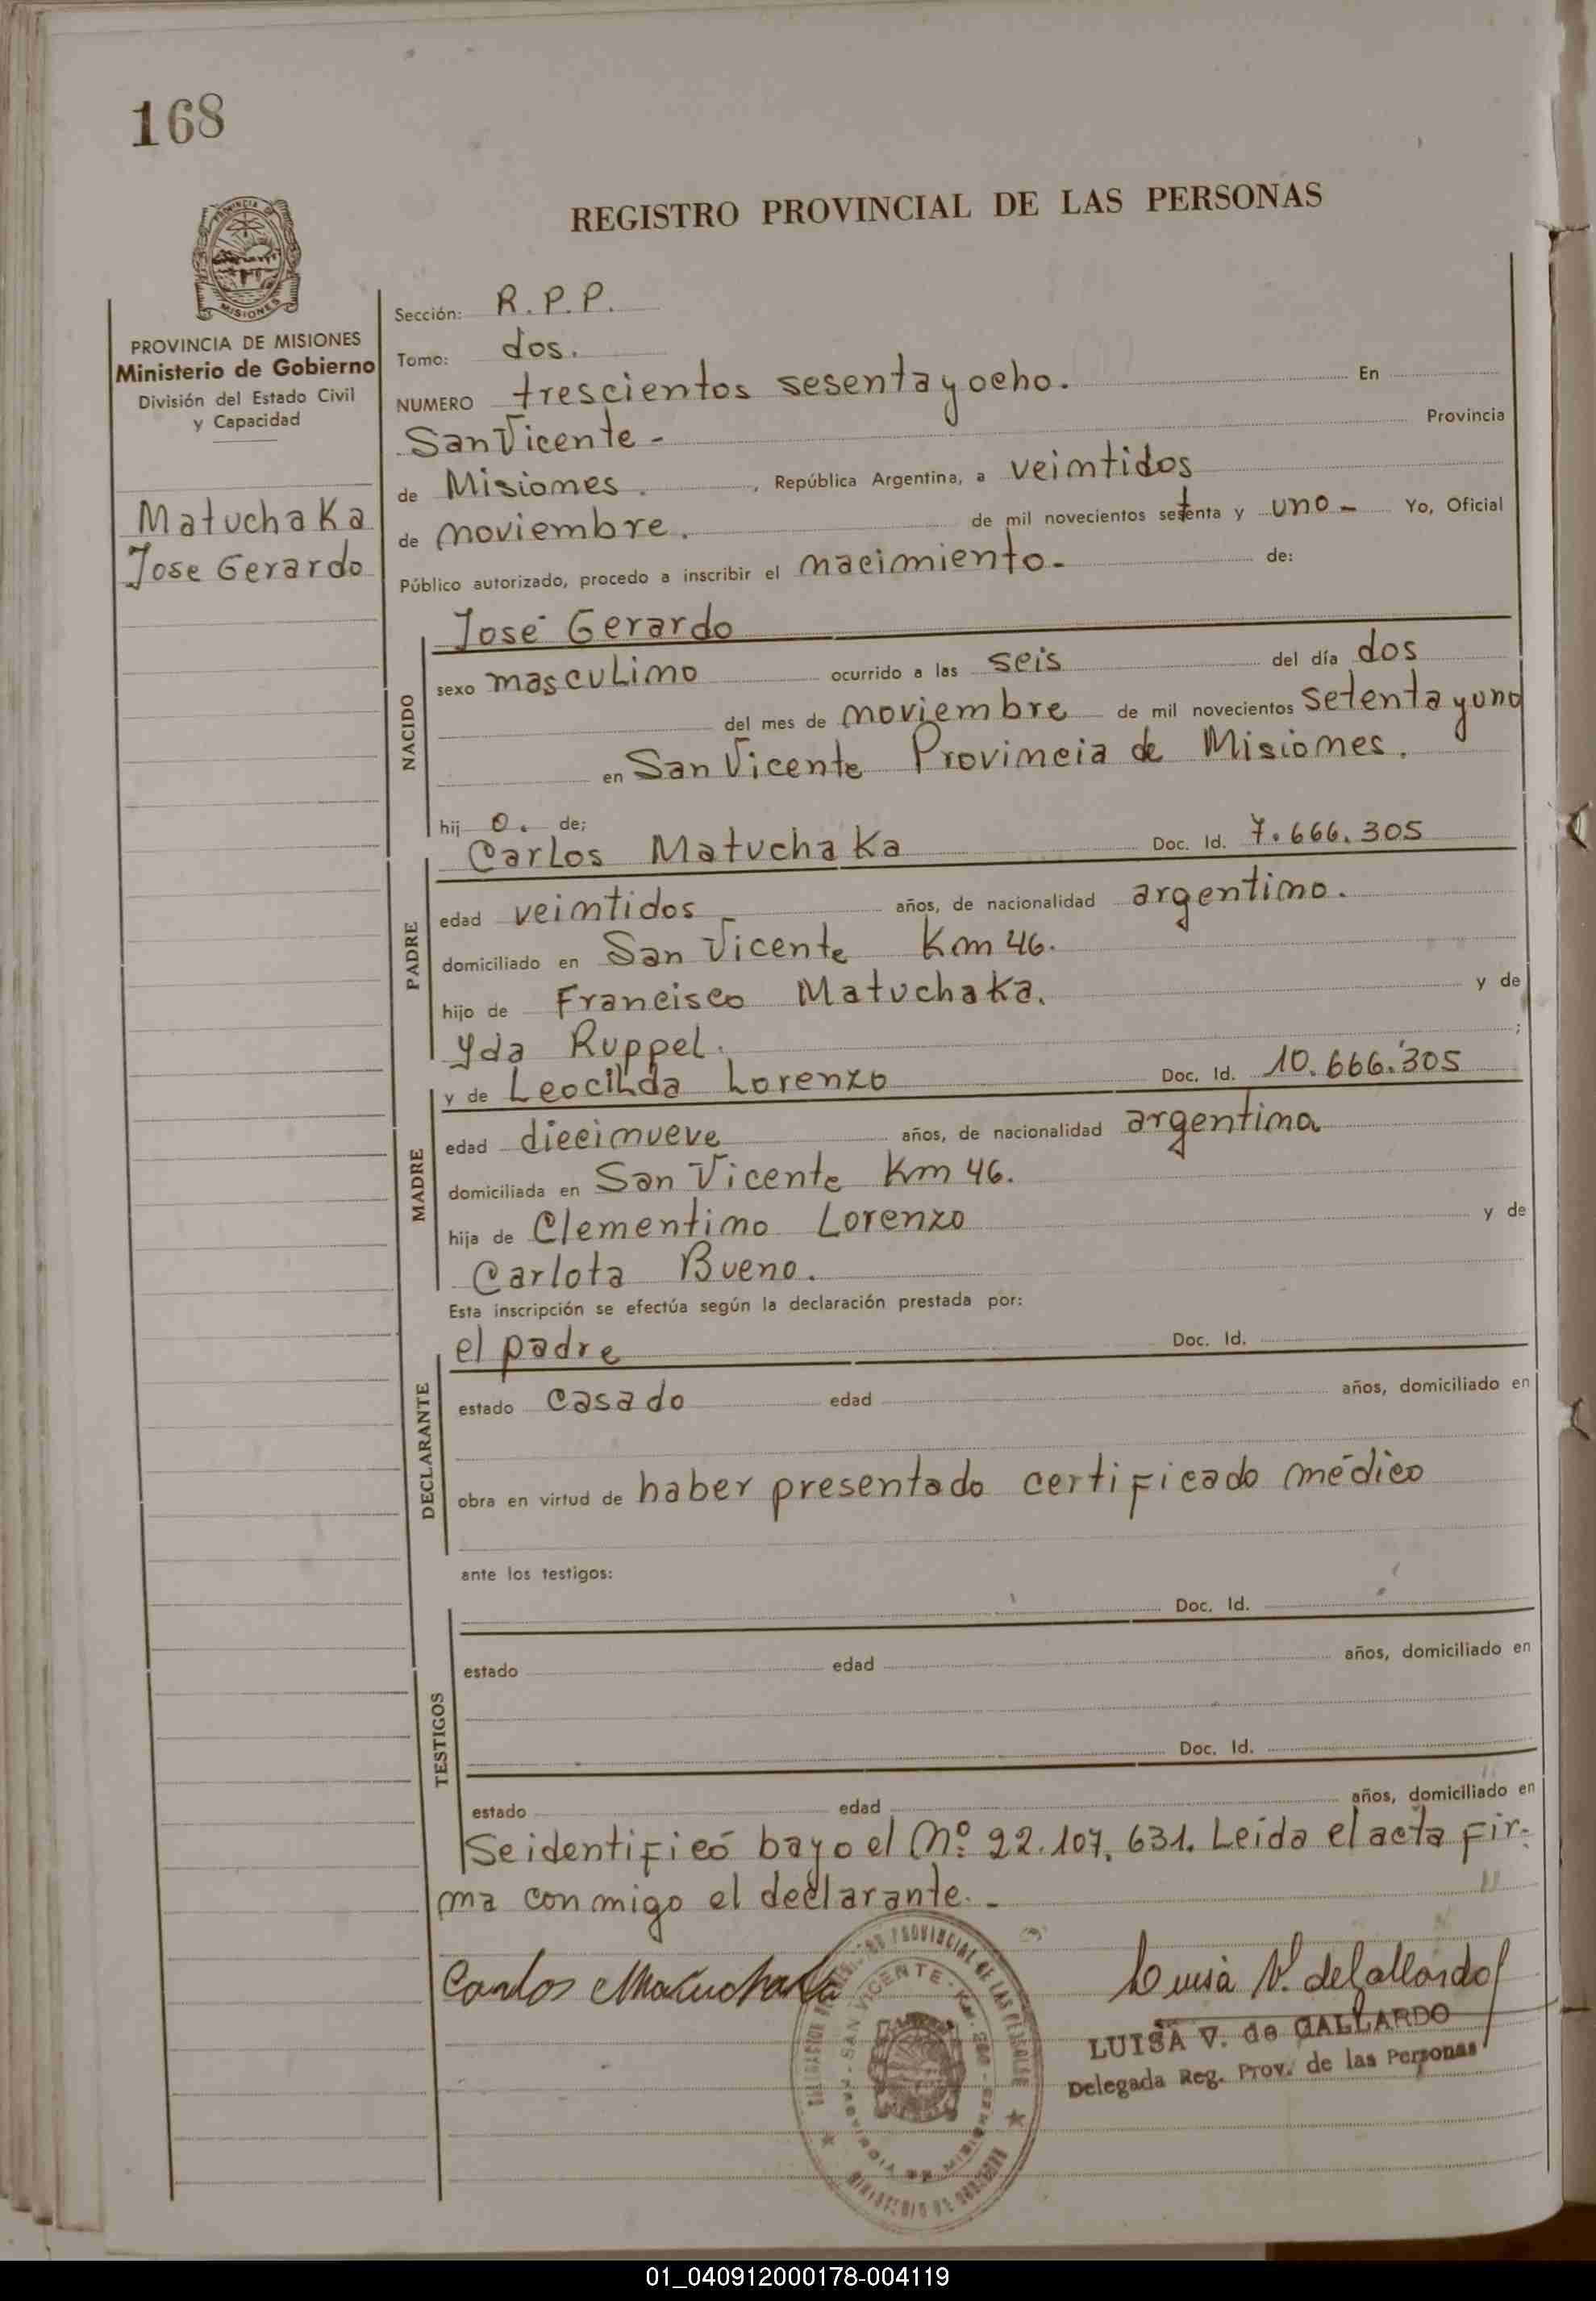 168
REGISTRO PROVINCIAL DE LAS PERSONAS
PROVINCIA DE MISIONES
Ministerio de Gobierno
División del Estado Civil
y Capacidad
Matuchaka
Jose Gerardo
Sección: R.P.P.
Tomo: dos.
NUMERO trescientos sesenta y ocho. En
San Vicente - Provincia
de Misiones. , República Argentina, a veintidos
de noviembre. de mil novecientos setenta y uno - Yo, Oficial
Público autorizado, procedo a inscribir el nacimiento. de:
NACIDO
José Gerardo
sexo masculino ocurrido a las seis del día dos
del mes de noviembre de mil novecientos setenta y uno
en San Vicente Provincia de Misiones.
hij o. de;
PADRE
Carlos Matuchaka Doc. Id. 7.666.305
edad veintidos años, de nacionalidad argentino.
domiciliado en San Vicente Km 46.
hijo de Francisco Matuchaka. y de
Yda Ruppel. ;
MADRE
y de Leocilda Lorenzo Doc. Id. 10.666.305
edad diecinueve años, de nacionalidad argentina
domiciliada en San Vicente Km 46.
hija de Clementino Lorenzo y de
Carlota Bueno.
Esta inscripción se efectúa según la declaración prestada por:
DECLARANTE
el padre Doc. Id.
estado casado edad años, domiciliado en
obra en virtud de haber presentado certificado médico
ante los testigos:
TESTIGOS
Doc. Id.
estado edad años, domiciliado en
Doc. Id.
estado edad años, domiciliado en
Se identificó bayo el Nº: 22.107.631. Leida el acta fir-
ma conmigo el declarante. -
Carlos Matuchaka
Luisa V. de Gallardo
LUISA V. de GALLARDO
Delegada Reg. Prov. de las Personas
PROVINCIAL DE LAS PERSONAS
SAN VICENTE
MINISTERIO DE GOBIERNO
01_040912000178-004119